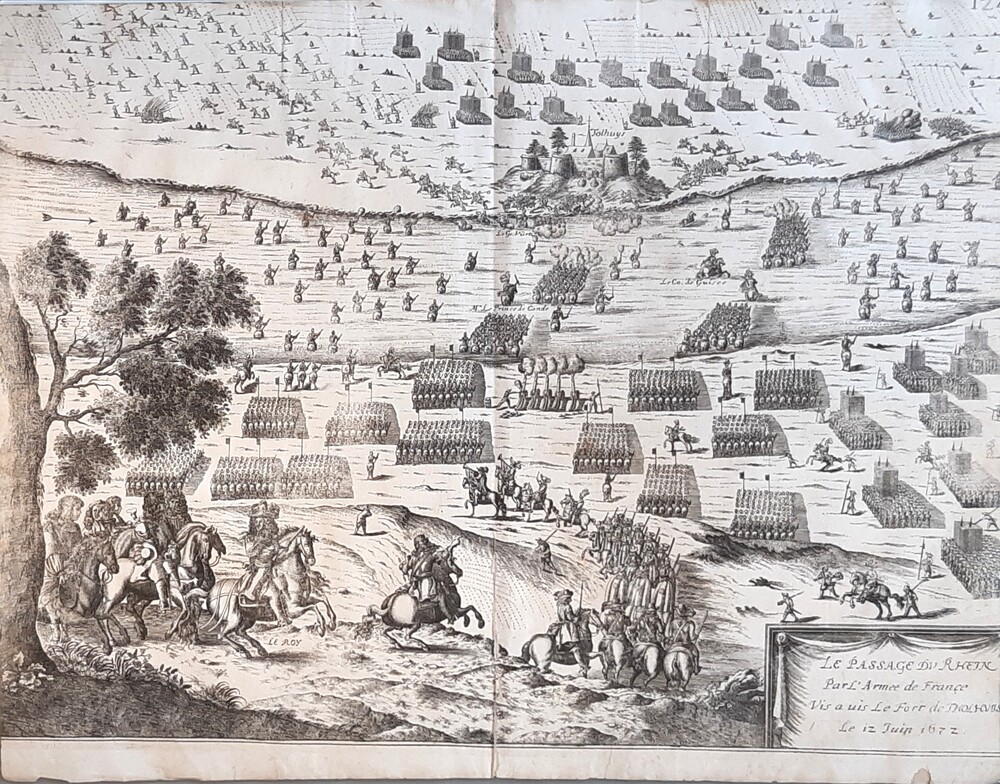 12
Tolhuys
Le Co. de Guiche
Mr. Le Prince de Condé
LE ROY
LE PASSAGE DV RHEIN
Par L'Armee de France
Vis a uis Le Fort de THOLHUIS
Le 12 Juin 1672